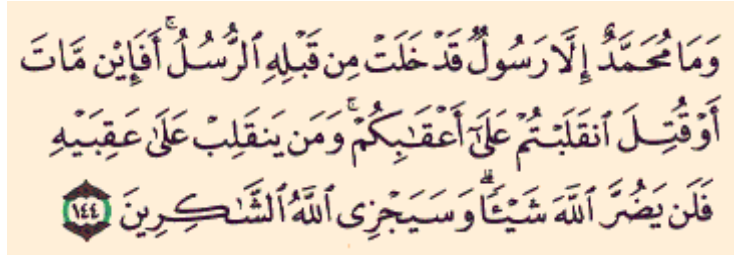 وَمَا مُحَمَّدٌ إِلَّا رَسُولٌ قَدْ خَلَتْ مِن قَبْلِهِ ٱلرُّسُلُ ۚ أَفَإِي۟ن مَّاتَ
أَوْ قُتِلَ ٱنقَلَبْتُمْ عَلَىٰٓ أَعْقَـٰبِكُمْ ۚ وَمَن يَنقَلِبْ عَلَىٰ عَقِبَيْهِ
فَلَن يَضُرَّ ٱللَّهَ شَيْـًٔا ۗ وَسَيَجْزِى ٱللَّهُ ٱلشَّـٰكِرِينَ ١٤٤